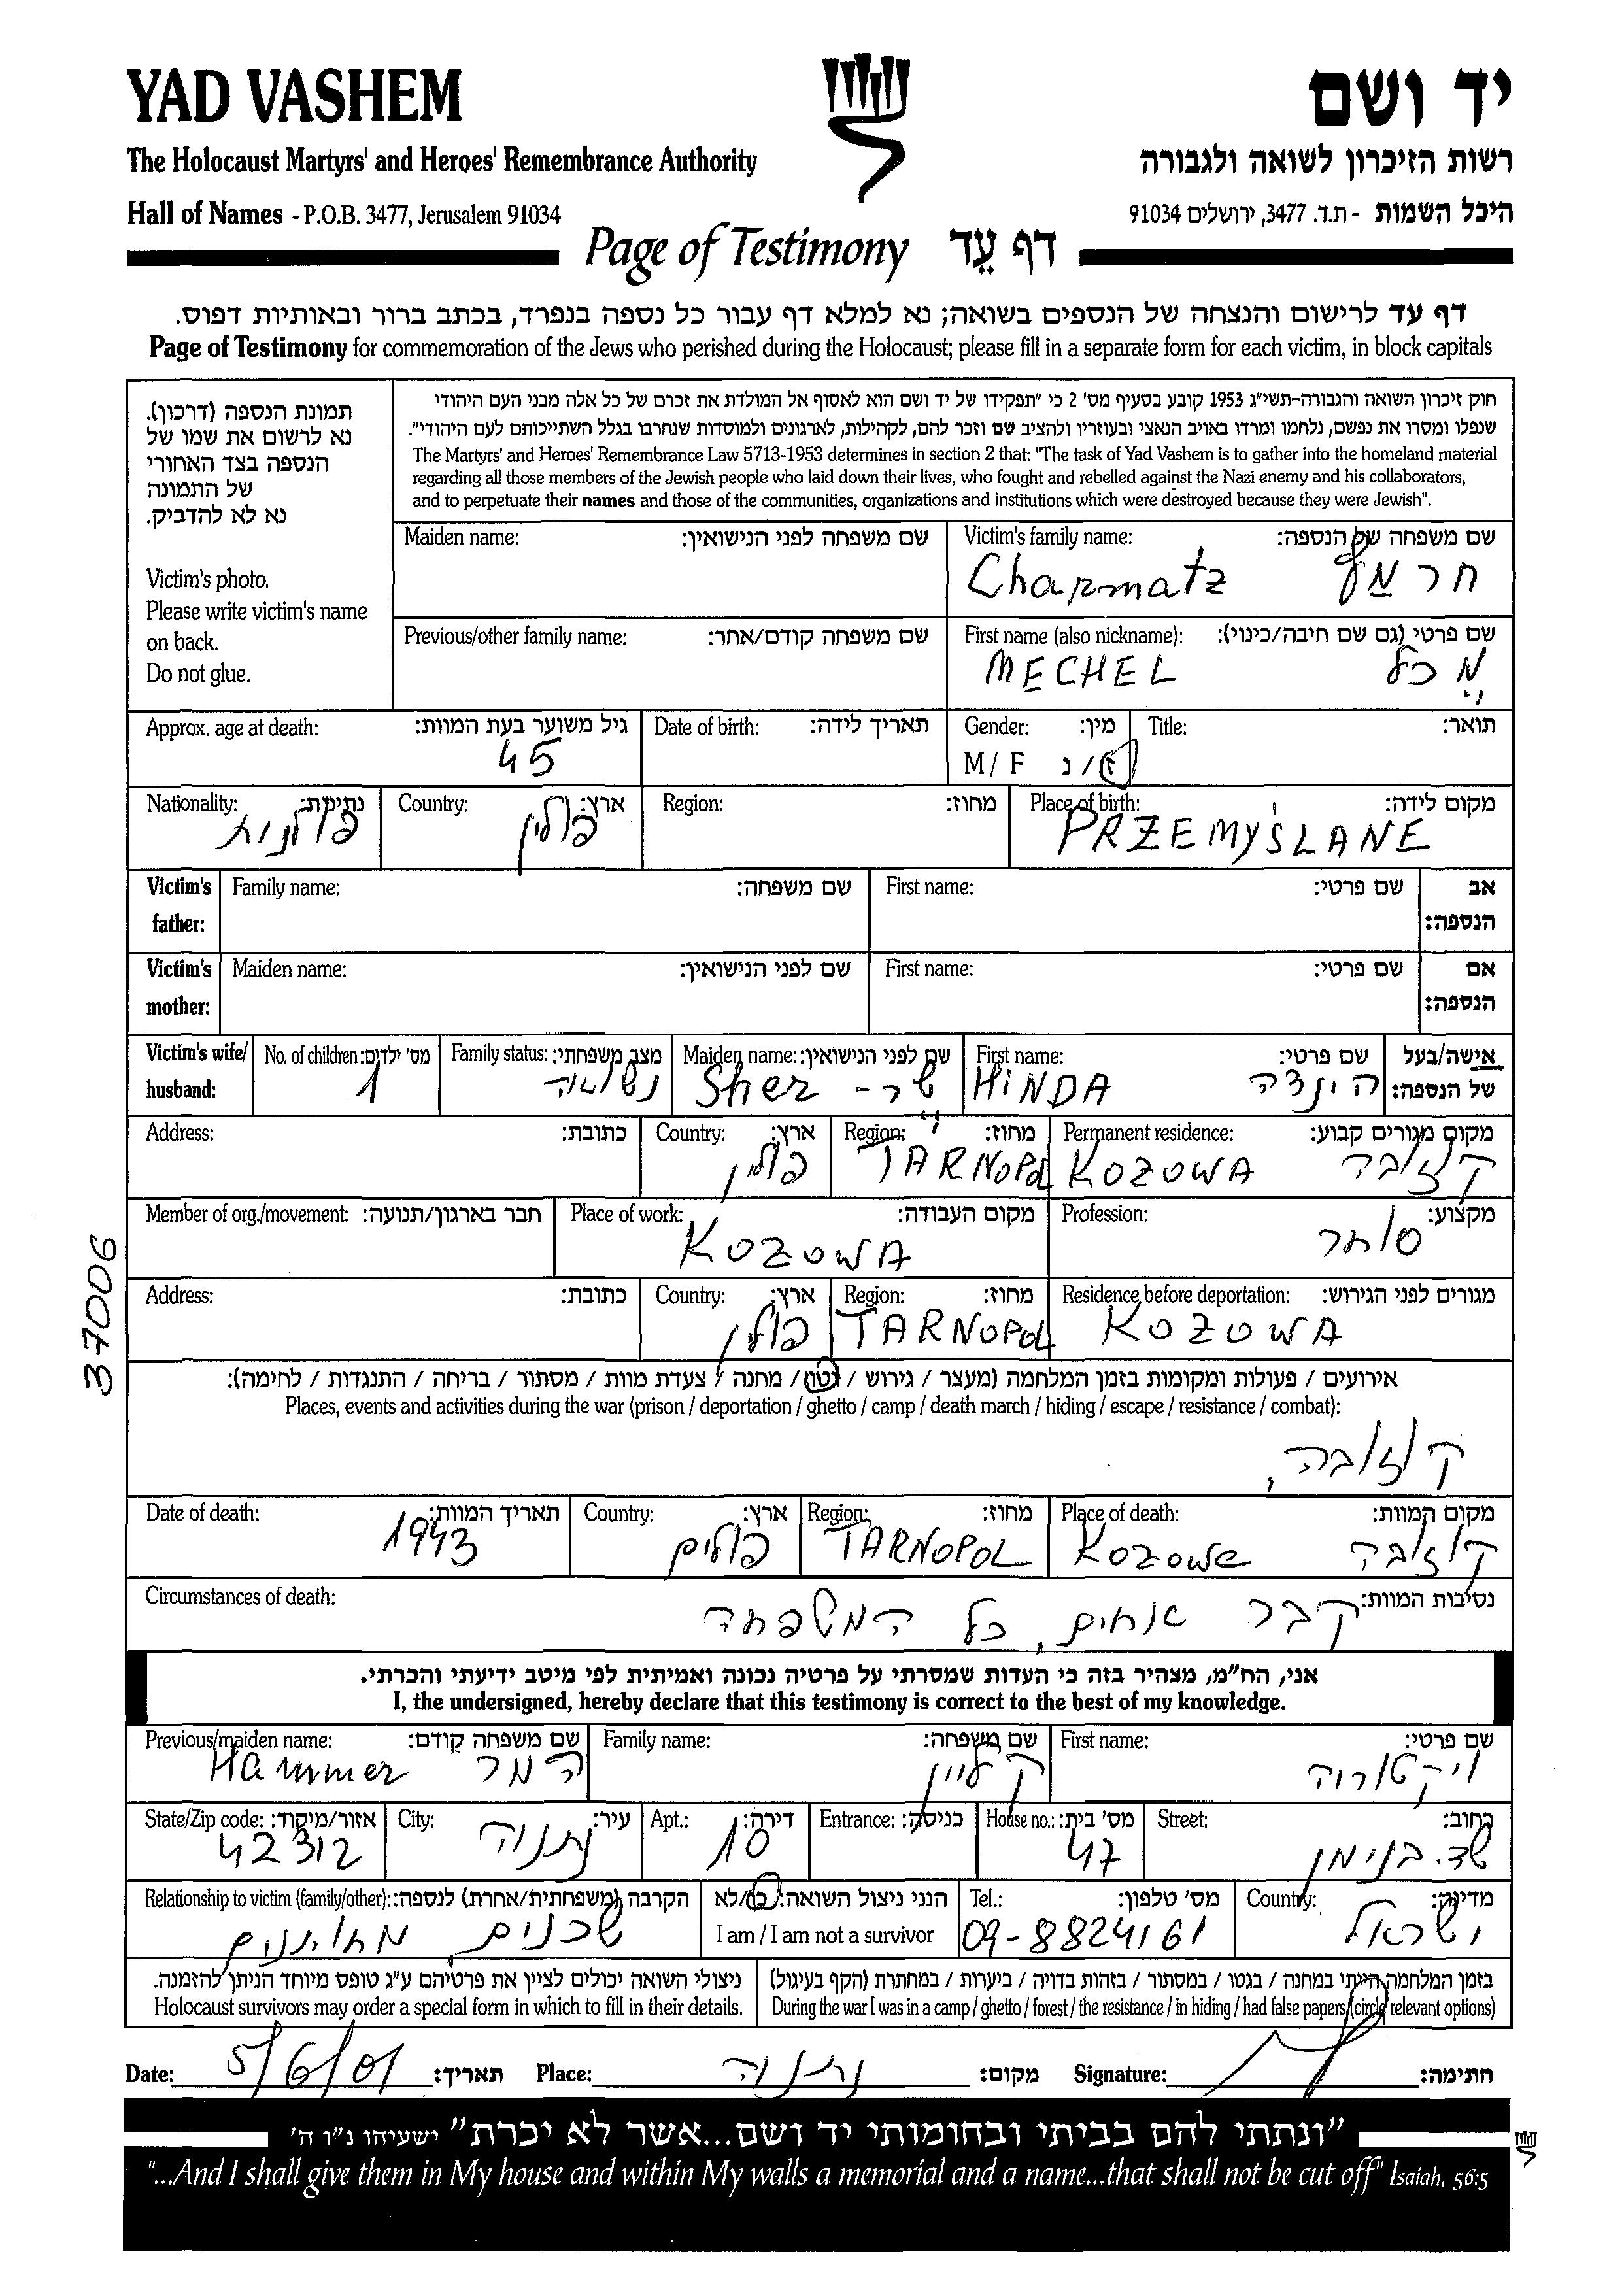 YAD VASHEM
יד ושם
The Holocaust Martyrs' and Heroes' Remembrance Authority
רשות הזיכרון לשואה ולגבורה
Hall of Names - P.O.B. 3477, Jerusalem 91034
היכל השמות - ת.ד. 3477, ירושלים 91034
Page of Testimony דף עֵד
דף עד לרישום והנצחה של הנספים בשואה; נא למלא דף עבור כל נספה בנפרד, בכתב ברור ובאותיות דפוס.
Page of Testimony for commemoration of the Jews who perished during the Holocaust; please fill in a separate form for each victim, in block capitals
תמונת הנספה (דרכון).
נא לרשום את שמו של
הנספה בצד האחורי
של התמונה
נא לא להדביק.
Victim's photo.
Please write victim's name
on back.
Do not glue.
חוק זיכרון השואה והגבורה-תשי"ג 1953 קובע בסעיף מס' 2 כי "תפקידו של יד ושם הוא לאסוף אל המולדת את זכרם של כל אלה מבני העם היהודי
שנפלו ומסרו את נפשם, נלחמו ומרדו באויב הנאצי ובעוזריו ולהציב שם וזכר להם, לקהילות, לארגונים ולמוסדות שנחרבו בגלל השתייכותם לעם היהודי".
The Martyrs' and Heroes' Remembrance Law 5713-1953 determines in section 2 that: "The task of Yad Vashem is to gather into the homeland material
regarding all those members of the Jewish people who laid down their lives, who fought and rebelled against the Nazi enemy and his collaborators,
and to perpetuate their names and those of the communities, organizations and institutions which were destroyed because they were Jewish".
Maiden name: שם משפחה לפני הנישואין:
Victim's family name: שם משפחה של הנספה:
Charmatz חרמץ
Previous/other family name: שם משפחה קודם/אחר:
First name (also nickname): שם פרטי (גם שם חיבה/כינוי):
MECHEL מכל
Approx. age at death: גיל משוער בעת המוות:
45
Date of birth: תאריך לידה:
Gender: מין:
M / F ז/נ
Title: תואר:
Nationality: נתינות:
פולנית
Country: ארץ:
פולין
Region: מחוז:
Place of birth: מקום לידה:
PRZEMYŚLANE
Victim's father: Family name: שם משפחה: First name: שם פרטי: אב הנספה:
Victim's mother: Maiden name: שם לפני הנישואין: First name: שם פרטי: אם הנספה:
Victim's wife/ husband:
No. of children: מס' ילדים:
1
Family status: מצב משפחתי:
נשואה
Maiden name: שם לפני הנישואין:
Sher - שר
First name: שם פרטי:
HINDA הינדה
אישה/בעל של הנספה:
Address: כתובת:
Country: ארץ:
פולין
Region: מחוז:
TARNOPOL
Permanent residence: מקום מגורים קבוע:
KOZOWA קוזובה
Member of org./movement: חבר בארגון/תנועה:
Place of work: מקום העבודה:
KOZOWA
Profession: מקצוע:
סוחר
Address: כתובת:
Country: ארץ:
פולין
Region: מחוז:
TARNOPOL
Residence before deportation: מגורים לפני הגירוש:
KOZOWA
אירועים / פעולות ומקומות בזמן המלחמה (מעצר / גירוש / גטו / מחנה / צעדת מוות / מסתור / בריחה / התנגדות / לחימה):
Places, events and activities during the war (prison / deportation / ghetto / camp / death march / hiding / escape / resistance / combat):
קוזובה,
Date of death: תאריך המוות:
1943
Country: ארץ:
פולים
Region: מחוז:
TARNOPOL
Place of death: מקום המוות:
Kozowa קוזובה
Circumstances of death: נסיבות המוות:
קבר אחים, כל המשפחה
אני, הח"מ, מצהיר בזה כי העדות שמסרתי על פרטיה נכונה ואמיתית לפי מיטב ידיעתי והכרתי.
I, the undersigned, hereby declare that this testimony is correct to the best of my knowledge.
Previous/maiden name: שם משפחה קודם:
Hammer המר
Family name: שם משפחה:
קליין
First name: שם פרטי:
ויקטוריה
State/Zip code: אזור/מיקוד:
42312
City: עיר:
נתניה
Apt.: דירה:
10
Entrance: כניסה:
House no.: מס' בית:
47
Street: רחוב:
שד. בנימין
Relationship to victim (family/other): הקרבה (משפחתית/אחרת) לנספה:
שכנים, מחותנים
הנני ניצול השואה: כן/לא
I am / I am not a survivor
Tel.: מס' טלפון:
09-8824161
Country: מדינה:
ישראל
ניצולי השואה יכולים לציין את פרטיהם ע"ג טופס מיוחד הניתן להזמנה.
Holocaust survivors may order a special form in which to fill in their details.
בזמן המלחמה הייתי במחנה / בגטו / במסתור / בזהות בדויה / ביערות / במחתרת (הקף בעיגול)
During the war I was in a camp / ghetto / forest / the resistance / in hiding / had false papers (circle relevant options)
Date: 5/6/01 תאריך: Place: נתניה מקום: Signature: חתימה:
"ונתתי להם בביתי ובחומותי יד ושם...אשר לא יכרת" ישעיהו נ"ו ה'
"...And I shall give them in My house and within My walls a memorial and a name...that shall not be cut off" Isaiah, 56:5
37006